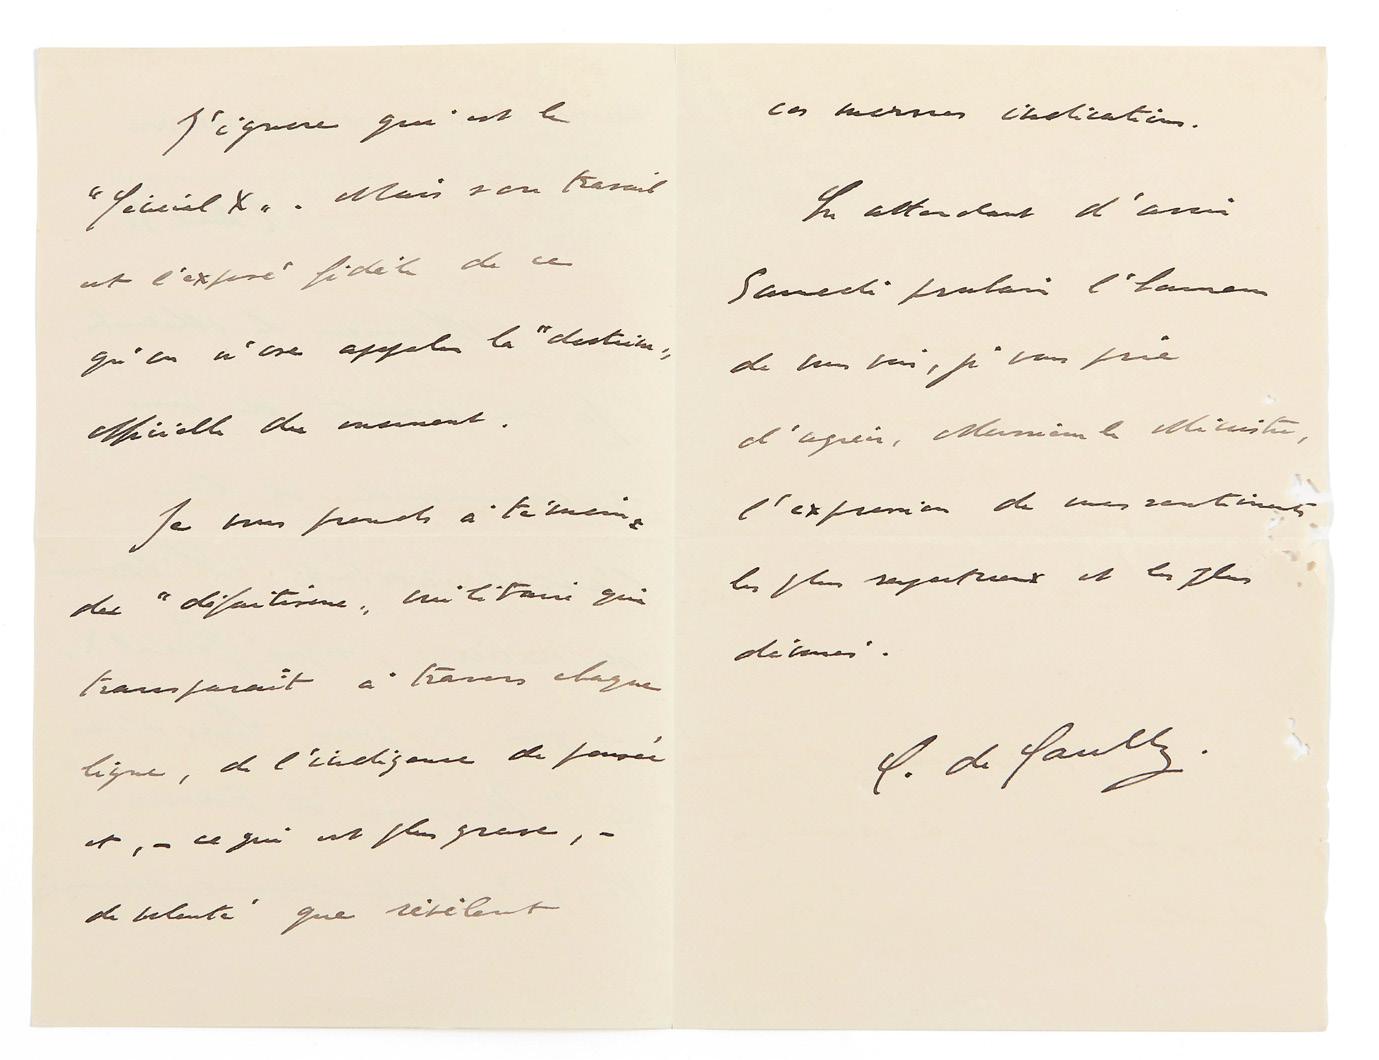 J'ignore qui est le
"Général X". Mais son travail
est l'exposé fidèle de ce
qu'on n'ose appeler la "doctrine"
officielle du moment.
Je vous prends à témoin,
du "défaitisme" militaire qui
transparaît à travers chaque
ligne, de l'indigence de pensée
et, - ce qui est plus grave, -
de volonté que révèlent
ces mornes indications.
En attendant d'avoir
Samedi prochain l'honneur
de vous voir, je vous prie
d'agréer, Monsieur le Ministre,
l'expression de mes sentiments
les plus respectueux et les plus
dévoués.
C. de Gaulle.